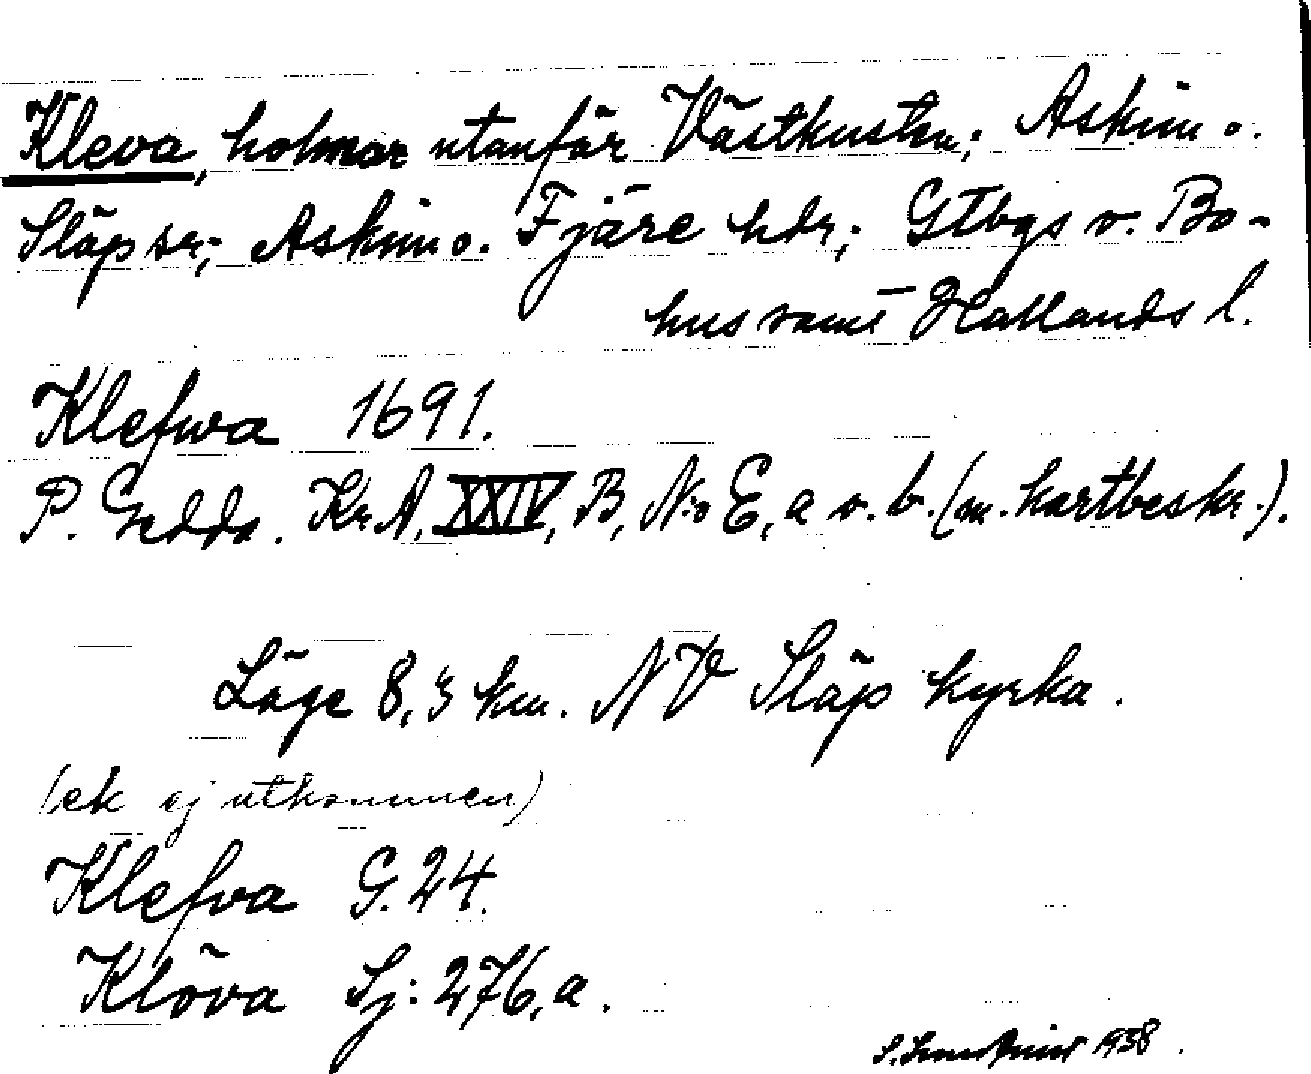 Kleva, holmar utanför Västkusten; Askim o.
Släp snr; Askim o. Fjäre hdr; Gtbgs o. Bo-
hus samt Hallands l.
Klefwa 1691.
P. Gedda. Kr.A. XXIV, B, No E, a o. b. (m. kartbeskr.).
Läge 8,3 km. NV Släp kyrka.
(ek ej utkommen)
Klefva G. 24.
Klöva Sj: 276, a.
S. 1938.